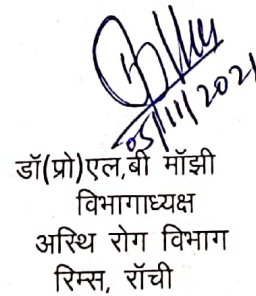 05/11/2021
डॉ(प्रो)एल,बी मॉझी
विभागाध्यक्ष
अस्थि रोग विभाग
रिम्स, रॉची